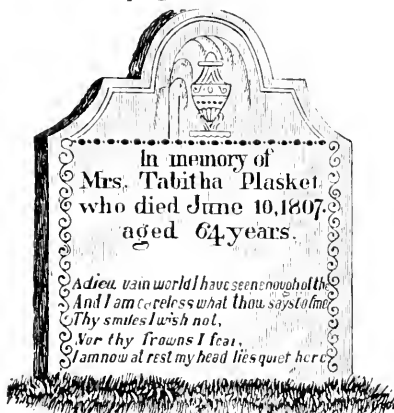 In memory of
Mrs. Tabitha Plasket
who died June 10, 1807.
aged 64 years.
Adieu vain world I have seen enough of the
And I am careless what thou says tofme
Thy smiles I wish not,
Nor thy frowns I fear,
I am now at rest my head lies quiet here